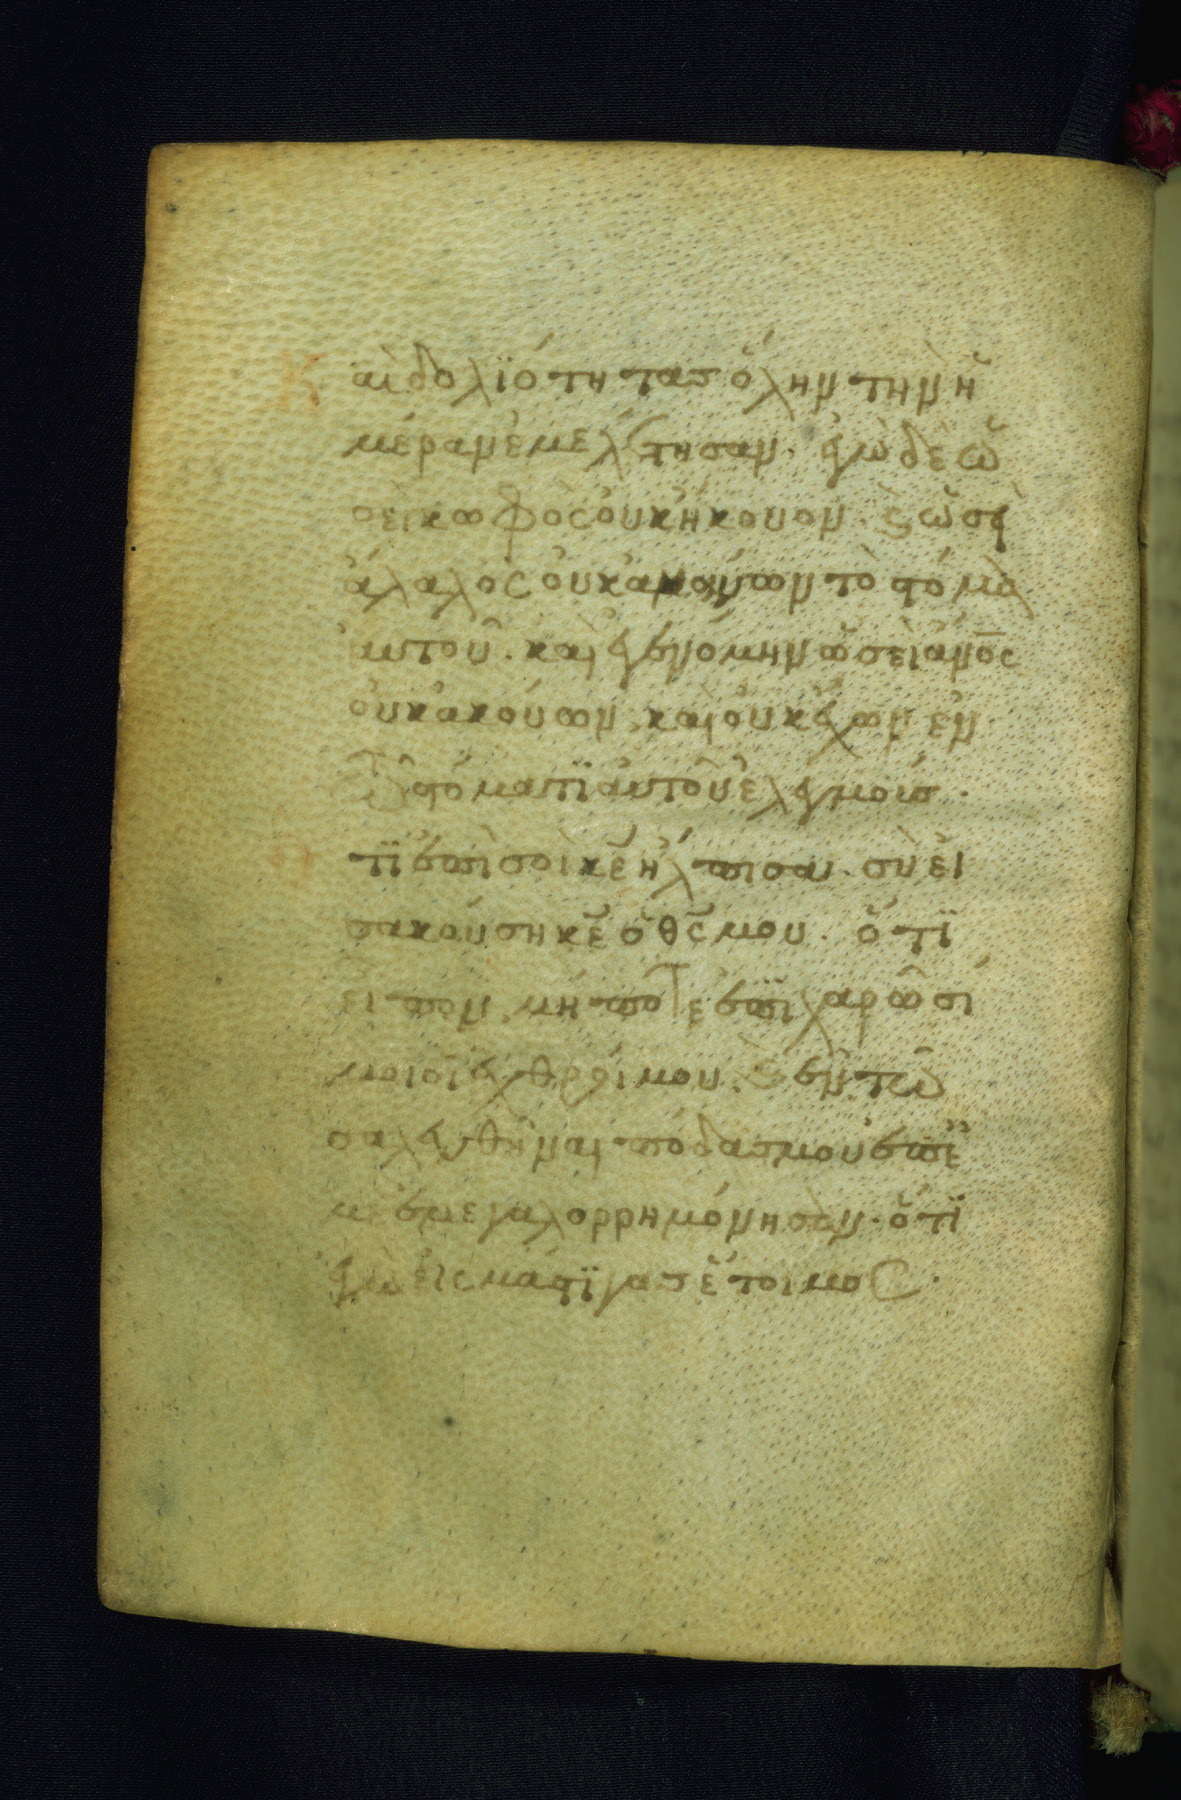 Καὶ δολϊότητας ὅλην τὴν ἡ
μέραν ἐμελέτησαν. ἐγὼ δὲ ὡ
σεὶ κωφὸς οὐκ ἤκουον. καὶ ὡσεὶ
ἄλαλος οὐκ ἀνοίγων τὸ στόμα
αὐτοῦ. καὶ ἐγενόμην ὡσεὶ ἄνος
οὐκ ἀκούων. καὶ οὐκ ἔχων ἐν
τῶ στόματϊ αὐτοῦ ἐλεγμούς.
Ὅτϊ ἐπὶ σοὶ κε ἤλπισα. σὺ εἰ
σακούση κε ὁ θς μου. ὅτϊ
εἶπον μήποτε ἐπϊχαρῶσί
μοι οἱ ἐχθροί μου. καὶ ἐν τῶ
σαλευθῆναι πόδας μου ἐπ ἐ
μὲ ἐμεγαλορρημόνησαν. ὅτϊ
ἐγὼ εἰς μάστϊγας ἕτοιμος.